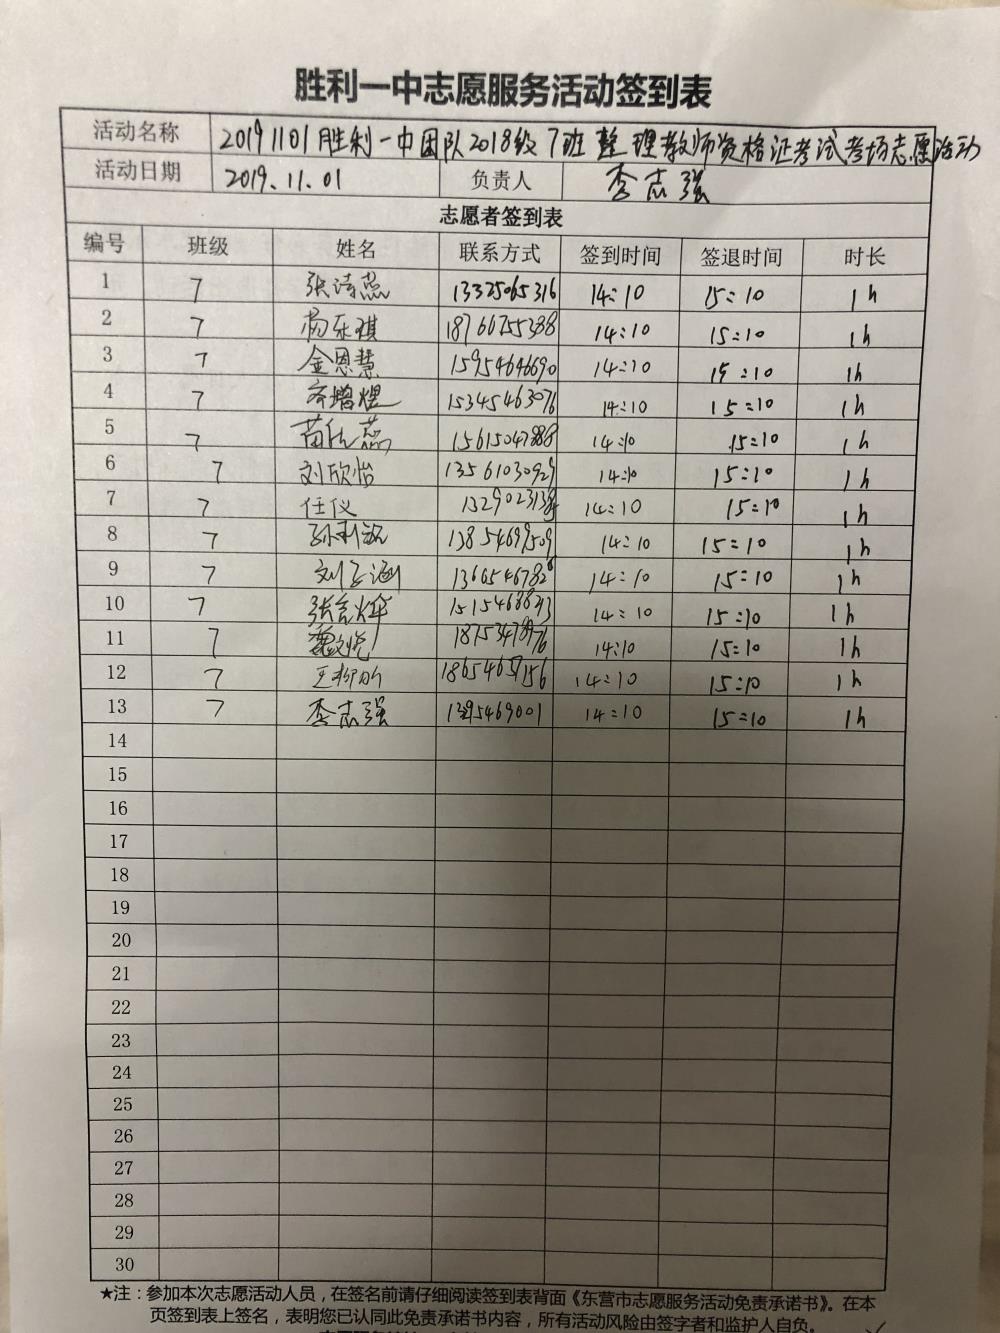 胜利一中志愿服务活动签到表
活动名称 20191101胜利一中团队2018级7班整理教师资格证考试考场志愿活动
活动日期 2019.11.01 负责人 李志强
志愿者签到表
编号 班级 姓名 联系方式 签到时间 签退时间 时长
1 7 张诗蕊 13325065316 14:10 15:10 1h
2 7 杨乐琪 18766755388 14:10 15:10 1h
3 7 金恩慧 15954646690 14:10 15:10 1h
4 7 齐增煜 15345463076 14:10 15:10 1h
5 7 苗依蕊 15615047888 14:10 15:10 1h
6 7 刘欣怡 13561030929 14:10 15:10 1h
7 7 任仪 14:10 15:10 1h
8 7 13854699509 14:10 15:10 1h
9 7 刘子涵 14:10 15:10 1h
10 7 张言烨 14:10 15:10 1h
11 7 魏文悦 14:10 15:10 1h
12 7 18654657156 14:10 15:10 1h
13 7 李志强 14:10 15:10 1h
14
15
16
17
18
19
20
21
22
23
24
25
26
27
28
29
30
★注：参加本次志愿活动人员，在签名前请仔细阅读签到表背面《东营市志愿服务活动免责承诺书》。在本
页签到表上签名，表明您已认同此免责承诺书内容，所有活动风险由签字者和监护人自负。